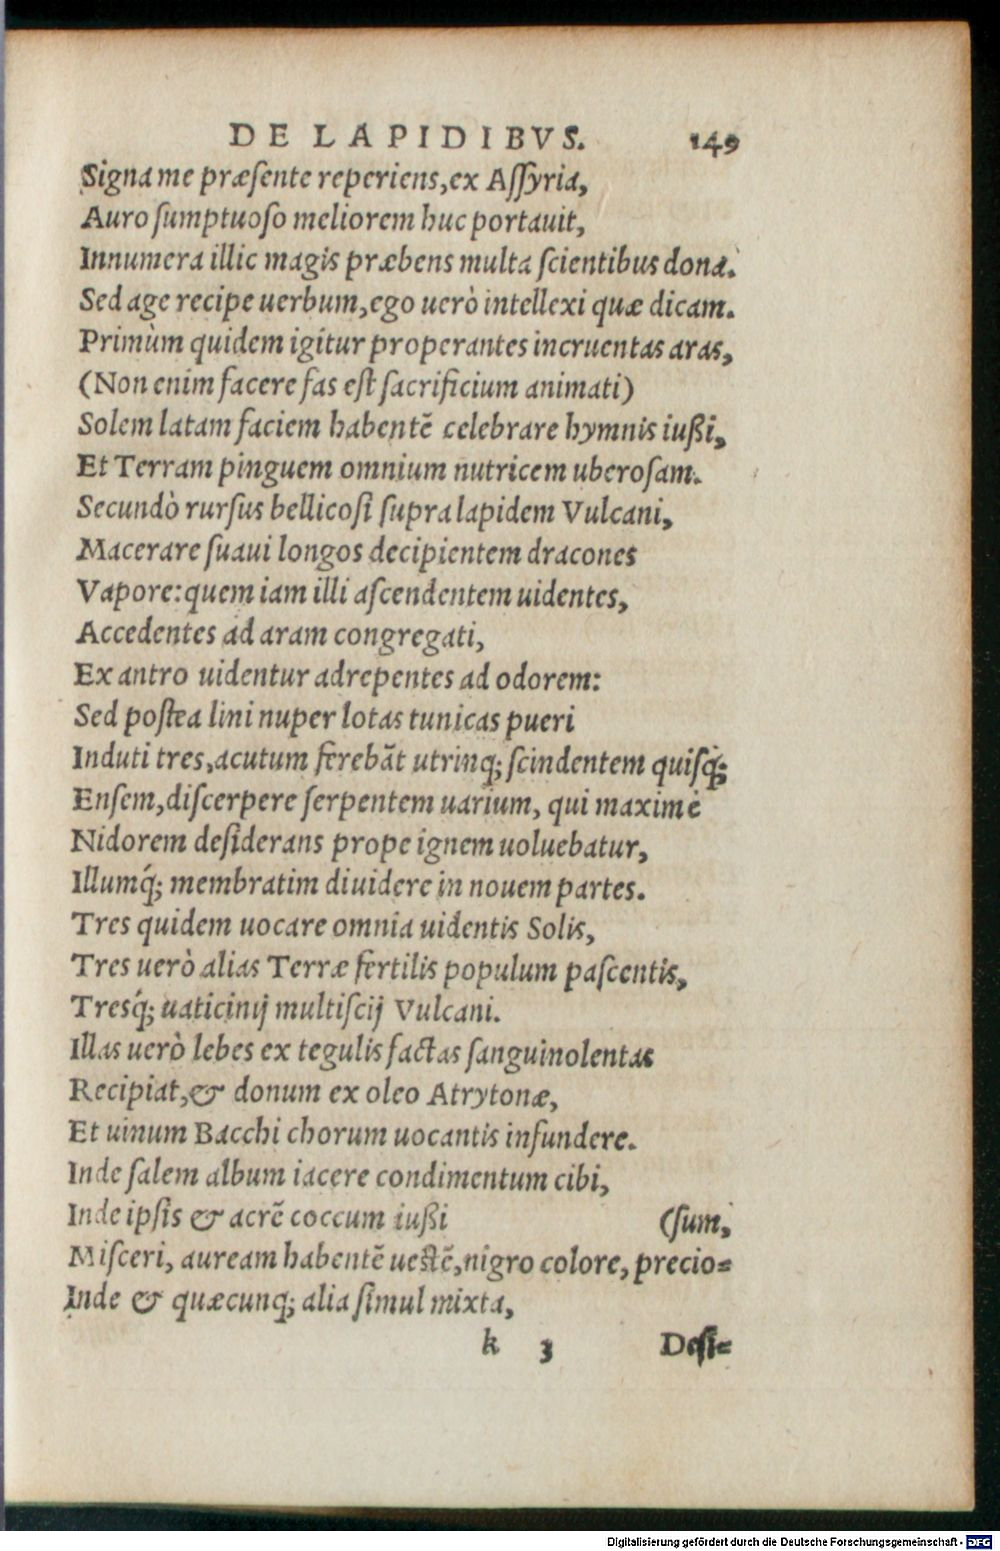 DE LAPIDIBVS. 149
Signa me præsente reperiens, ex Assyria,
Auro sumptuoso meliorem huc portauit,
Innumera illic magis præbens multa scientibus dona.
Sed age recipe uerbum, ego uerò intellexi quæ dicam.
Primùm quidem igitur properantes incruentas aras,
(Non enim facere fas est sacrificium animati)
Solem latam faciem habentē celebrare hymnis iußi,
Et Terram pinguem omnium nutricem uberosam.
Secundò rursus bellicosi supra lapidem Vulcani,
Macerare suaui longos decipientem dracones
Vapore: quem iam illi ascendentem uidentes,
Accedentes ad aram congregati,
Ex antro uidentur adrepentes ad odorem:
Sed postea lini nuper lotas tunicas pueri
Induti tres, acutum ferebāt utrinq; scindentem quisq́;
Ensem, discerpere serpentem uarium, qui maximè
Nidorem desiderans prope ignem uoluebatur,
Illumq́; membratim diuidere in nouem partes.
Tres quidem uocare omnia uidentis Solis,
Tres uerò alias Terræ fertilis populum pascentis,
Tresq́; uaticinij multiscij Vulcani.
Illas uerò lebes ex tegulis factas sanguinolentas
Recipiat, & donum ex oleo Atrytonæ,
Et uinum Bacchi chorum uocantis infundere.
Inde salem album iacere condimentum cibi,
Inde ipsis & acrē coccum iußi (sum,
Misceri, auream habentē uestē, nigro colore, precio=
Inde & quæcunq; alia simul mixta,
k 3 Desi=
Digitalisierung gefördert durch die Deutsche Forschungsgemeinschaft - DFG